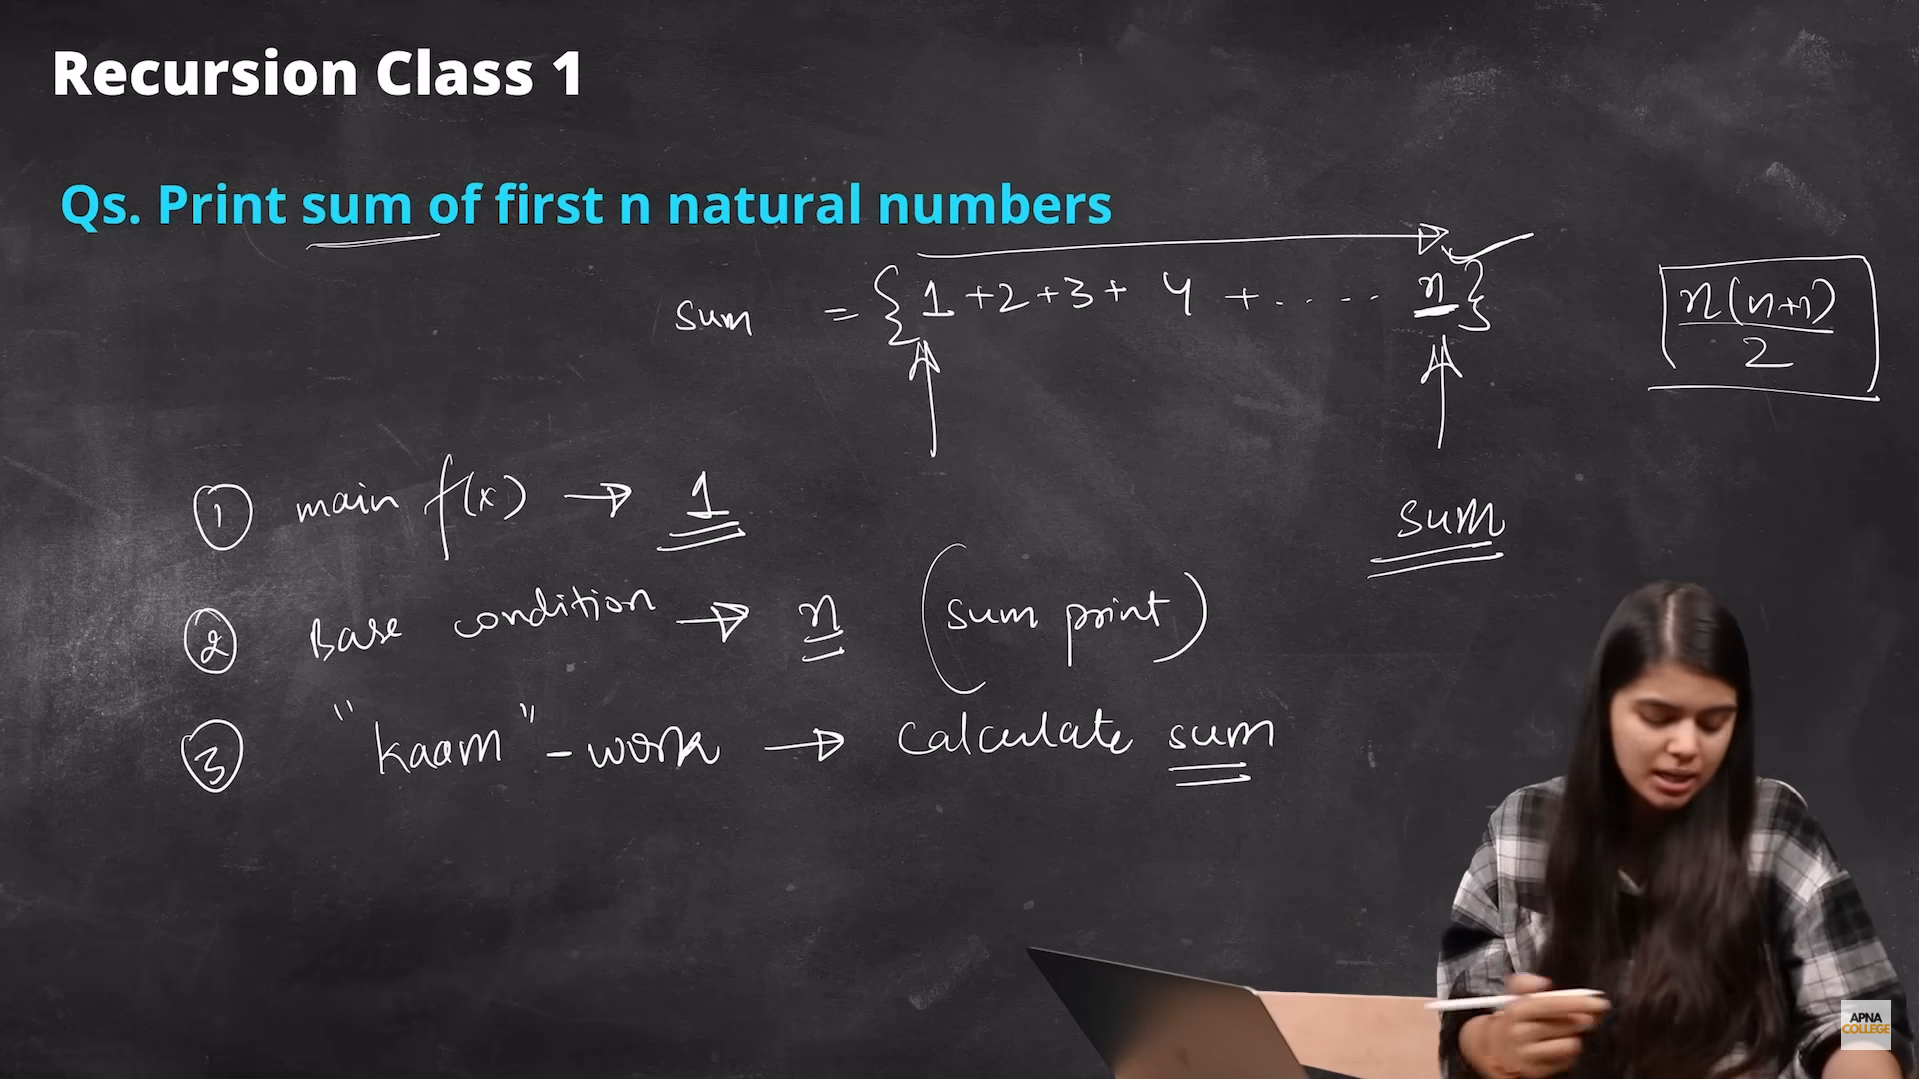 Recursion Class 1
Qs. Print sum of first n natural numbers
sum = {1 +2+3+ 4 + ..... n}
n(n+1)
2
1 main f(x) → 1
sum
2 Base condition → n (sum print)
3 "kaam" - work → calculate sum
APNA
COLLEGE